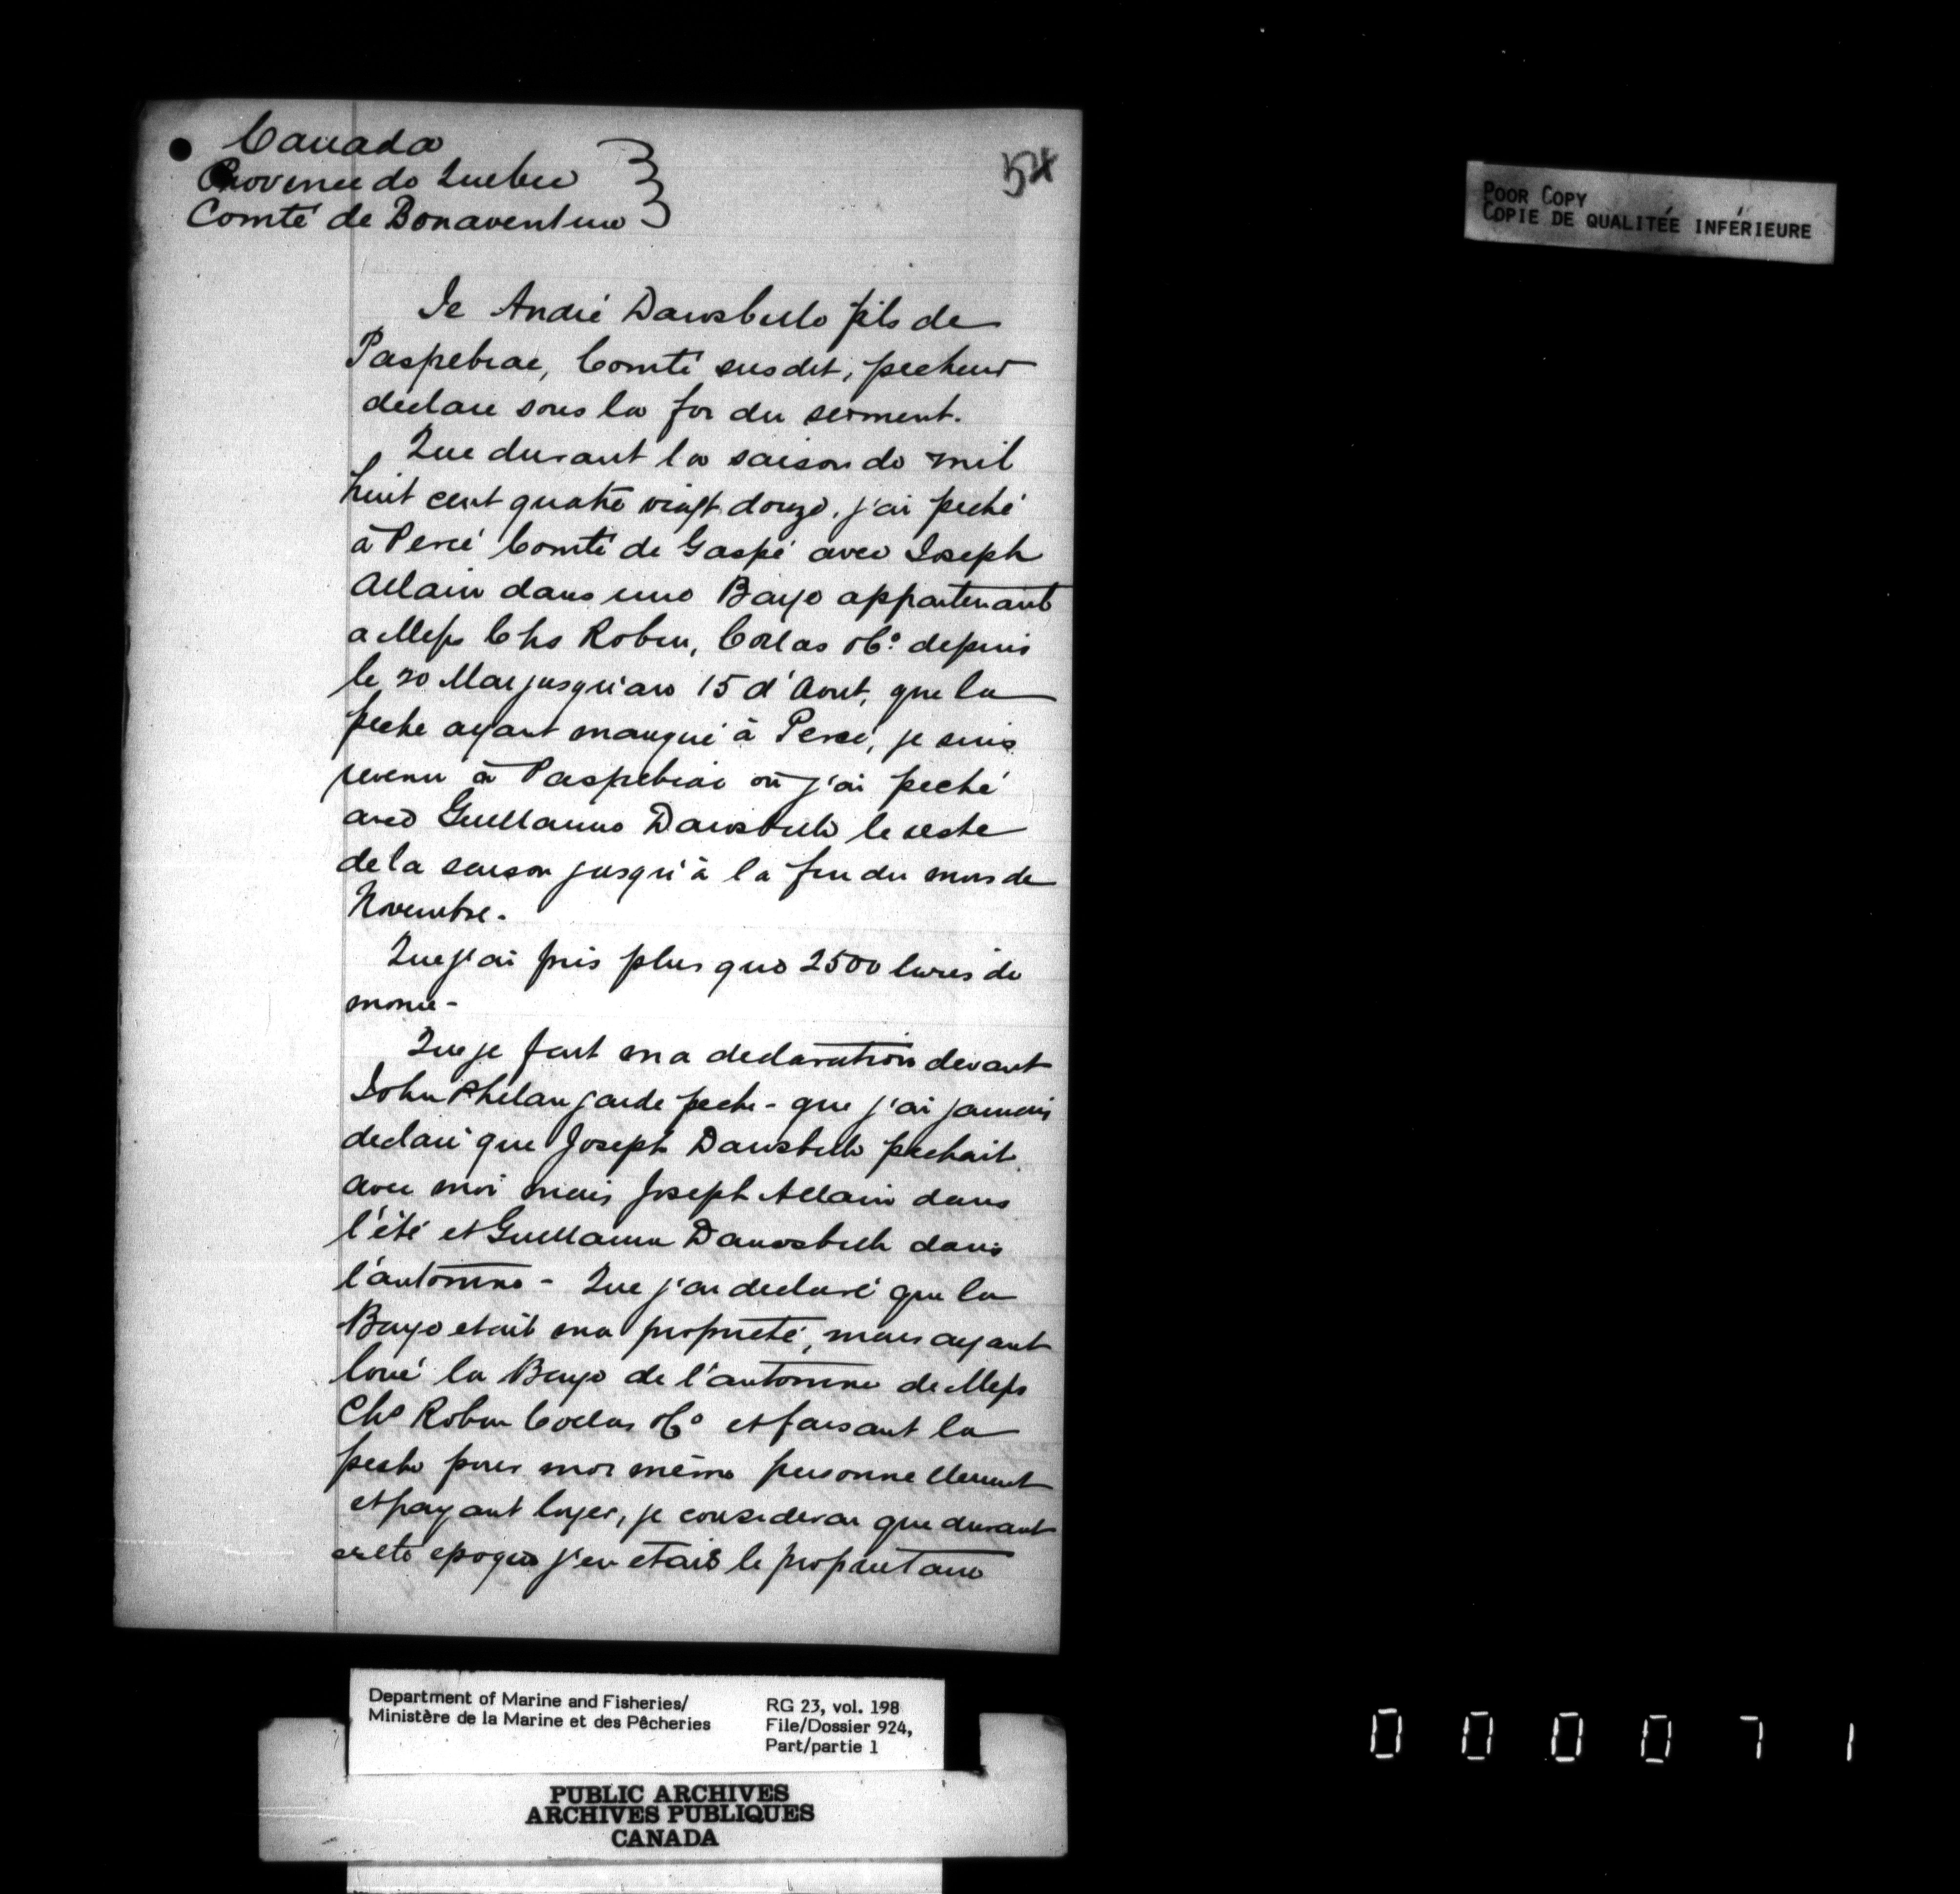 Canada
Province de Quebec
Comté de Bonaventure
54
Je André Daws fils de
Paspebiac, Comté susdit, pecheur
declare sous la foi du serment.
Que durant la saison de mil
huit cent quatre vingt douze, j'ai peché
à Percé Comté de Gaspé avec Joseph
Allain dans une Barge appartenant
a Mess Chs Robin, Collas & Co. depuis
le 20 Mai jusqu'au 15 d'Aout, que la
peche ayant manqué à Percé, je suis
revenu à Paspebiac où j'ai peché
avec Guillaume le reste
de la saison jusqu'à la fin du mois de
Novembre.
Que j'ai pris plus que 2500 livres de
morue -
Que je fait ma declaration devant
John Phelan garde peche - que j'ai jamais
declaré que Joseph pechait
avec moi mais Joseph Allain dans
l'été et Guillaume dans
l'automne - Que j'ai declaré que la
Barge etait ma proprieté, mais ayant
loué la Barge de l'automne de Mess
Chs Robin Collas & Co et faisant la
peche pour moi même personnellement
et payant loyer, je considerai que durant
cette epoque j'en etais le proprietaire
POOR COPY
COPIE DE QUALITÉE INFÉRIEURE
Department of Marine and Fisheries/
Ministère de la Marine et des Pêcheries
RG 23, vol. 198
File/Dossier 924,
Part/partie 1
PUBLIC ARCHIVES
ARCHIVES PUBLIQUES
CANADA
000071